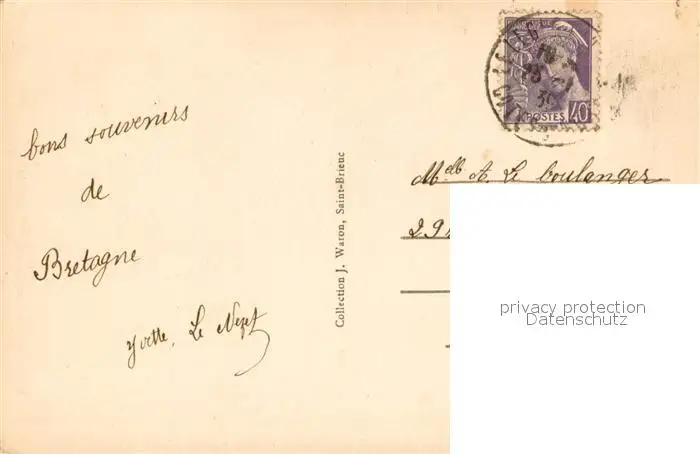 bons souvenirs
de
Bretagne
Yvette. Le
Collection J. Waron, Saint-Brieuc
POSTES 40
Melle A. Le boulanger
29
privacy protection
Datenschutz